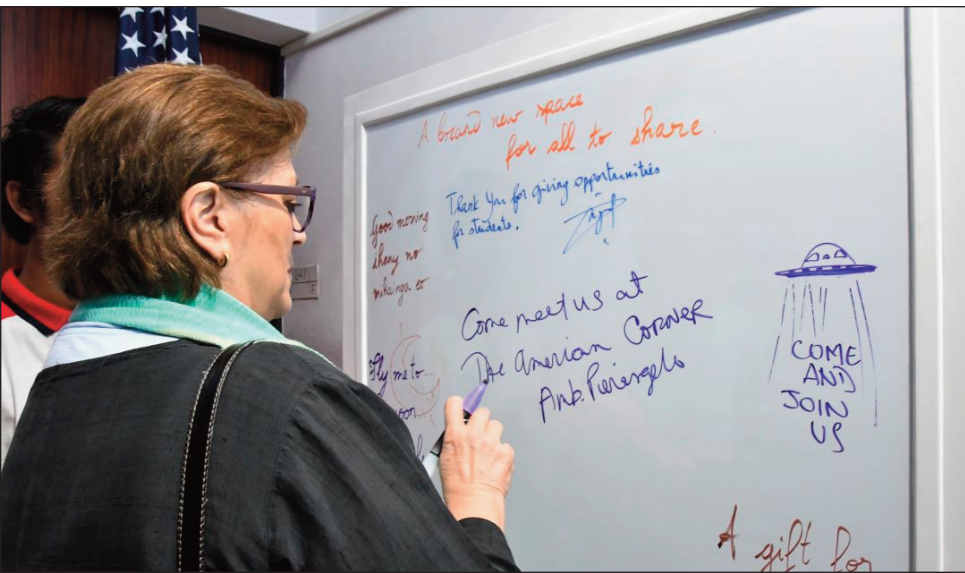 A brand new space
for all to share.
Thank You for giving opportunities
for students.
Good morning
shany no
mihainga eo
Come meet us at
The American CORNER
Amb. Pierangelo
Fly me to
COME
AND
JOIN
US
A gift for